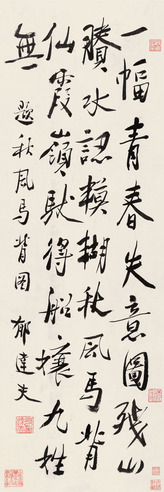 一幅青春失意圖殘山
賸水認模糊秋風馬背
仙霞嶺馱得船孃九姓
無
題秋風馬背圖 郁達夫